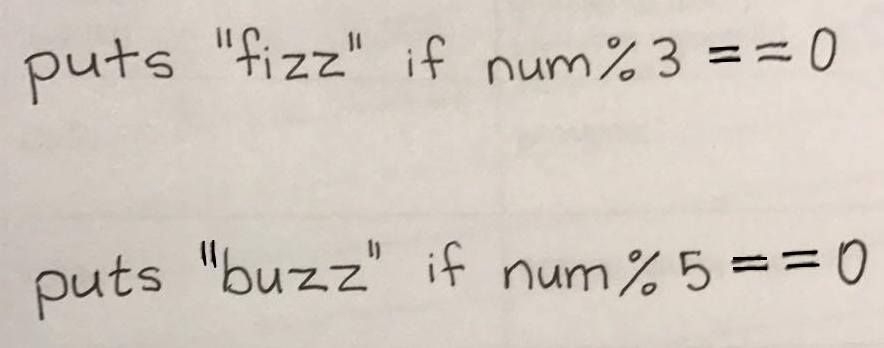 puts "fizz" if num % 3 == 0
puts "buzz" if num % 5 == 0